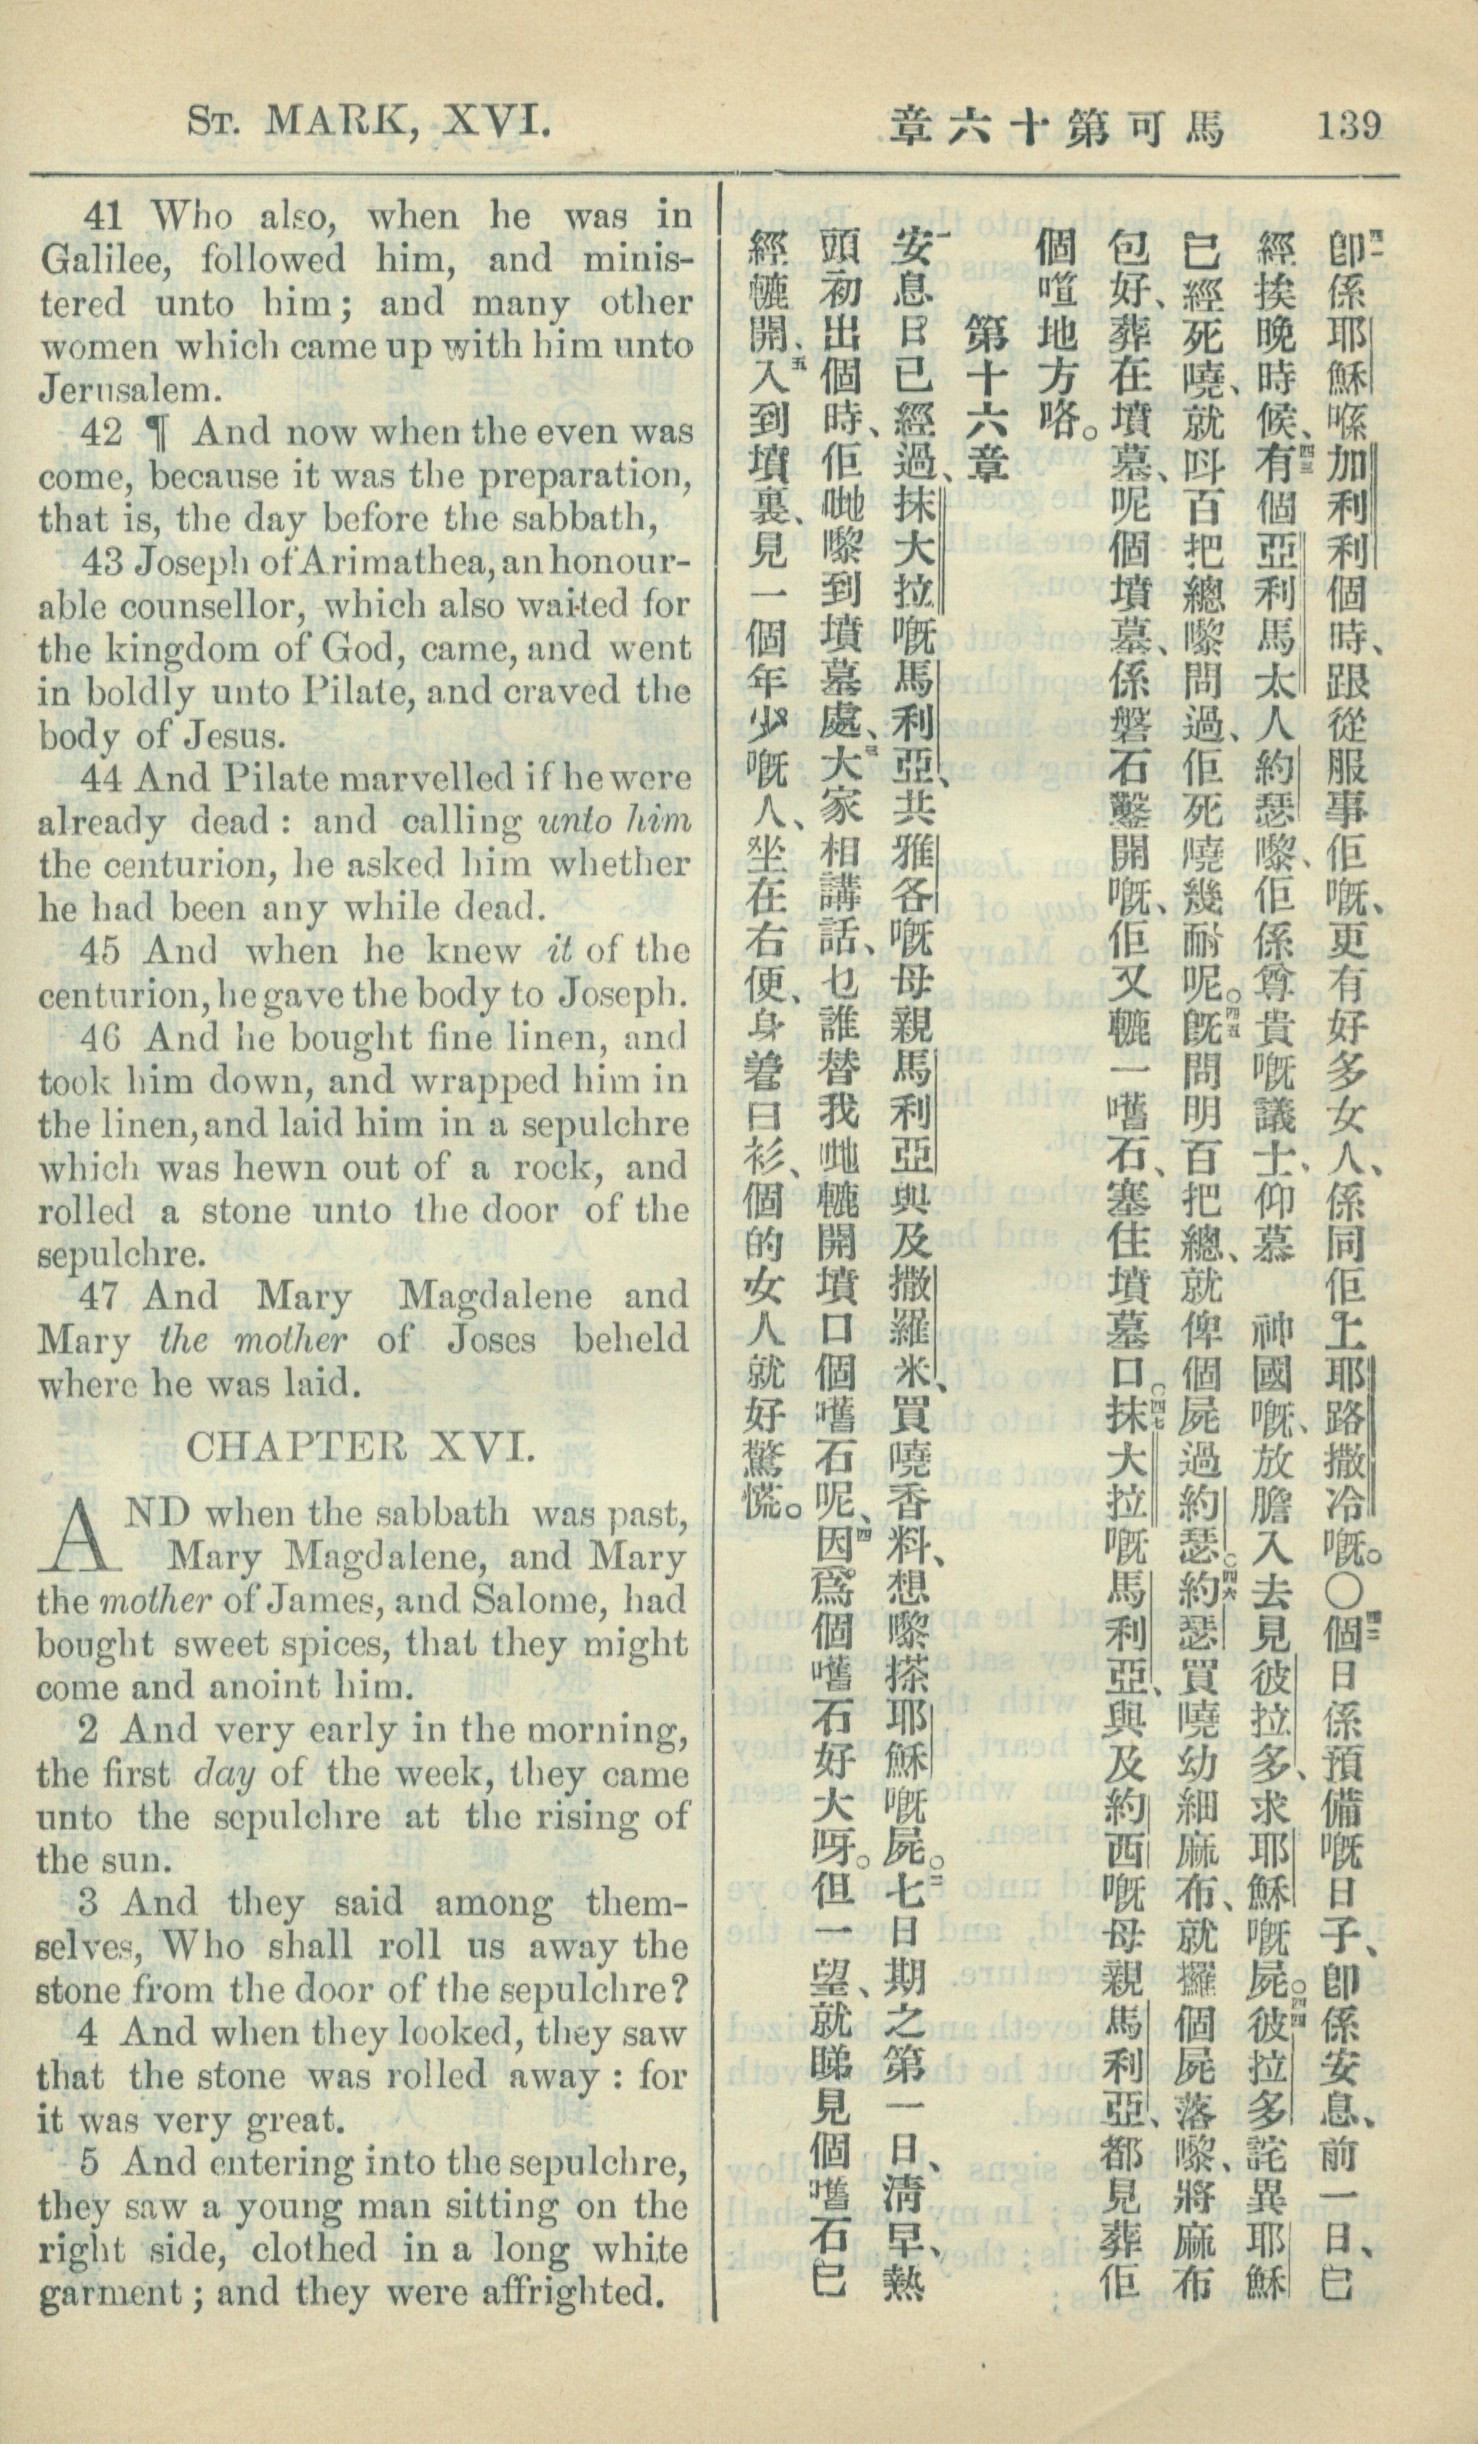 ST. MARK, XVI.
章六十第可馬 139
41 Who also, when he was in
Galilee, followed him, and minis-
tered unto him; and many other
women which came up with him unto
Jerusalem.
42 ¶ And now when the even was
come, because it was the preparation,
that is, the day before the sabbath,
43 Joseph of Arimathea, an honour-
able counsellor, which also waited for
the kingdom of God, came, and went
in boldly unto Pilate, and craved the
body of Jesus.
44 And Pilate marvelled if he were
already dead: and calling unto him
the centurion, he asked him whether
he had been any while dead.
45 And when he knew it of the
centurion, he gave the body to Joseph.
46 And he bought fine linen, and
took him down, and wrapped him in
the linen, and laid him in a sepulchre
which was hewn out of a rock, and
rolled a stone unto the door of the
sepulchre.
47 And Mary Magdalene and
Mary the mother of Joses beheld
where he was laid.
CHAPTER XVI.
AND when the sabbath was past,
Mary Magdalene, and Mary
the mother of James, and Salome, had
bought sweet spices, that they might
come and anoint him.
2 And very early in the morning,
the first day of the week, they came
unto the sepulchre at the rising of
the sun.
3 And they said among them-
selves, Who shall roll us away the
stone from the door of the sepulchre?
4 And when they looked, they saw
that the stone was rolled away: for
it was very great.
5 And entering into the sepulchre,
they saw a young man sitting on the
right side, clothed in a long white
garment; and they were affrighted.
四一卽係耶穌喺加利利個時、跟從服事佢嘅、更有好多女人、係同佢上耶路撒冷嘅。〇四二個日係預備嘅日子、卽係安息、前一日、已
經挨晚時候、四三有個亞利馬太人約瑟嚟、佢係尊貴嘅議士、仰慕 神國嘅、放膽入去見彼拉多、求耶穌嘅屍。〇四四彼拉多詫異耶穌
已經死嘵、就呌百把總嚟問過、佢死嘵幾耐呢。〇四五旣問明百把總、就俾個屍過約瑟。〇四六約瑟買嘵幼細麻布、就攞個屍落嚟、將麻布
包好、葬在墳墓、呢個墳墓、係磐石鑿開嘅、佢又轆一嚿石、塞住墳墓口。〇四七抹大拉嘅馬利亞、與及約西嘅母親馬利亞、都見葬佢
個噹地方咯。
第十六章
一安息日已經過、抹大拉嘅馬利亞、共雅各嘅母親馬利亞與及撒羅米、買嘵香料、想嚟搽耶穌嘅屍。〇二七日期之第一日、淸早、熱
頭初出個時、佢哋嚟到墳墓處、三大家相講話、乜誰替我哋轆開墳口個嚿石呢、四因爲個嚿石好大呀。但一望、就睇見個嚿石已
經轆開、五入到墳裏、見一個年少嘅人、坐在右便、身着白衫、個的女人就好驚慌。